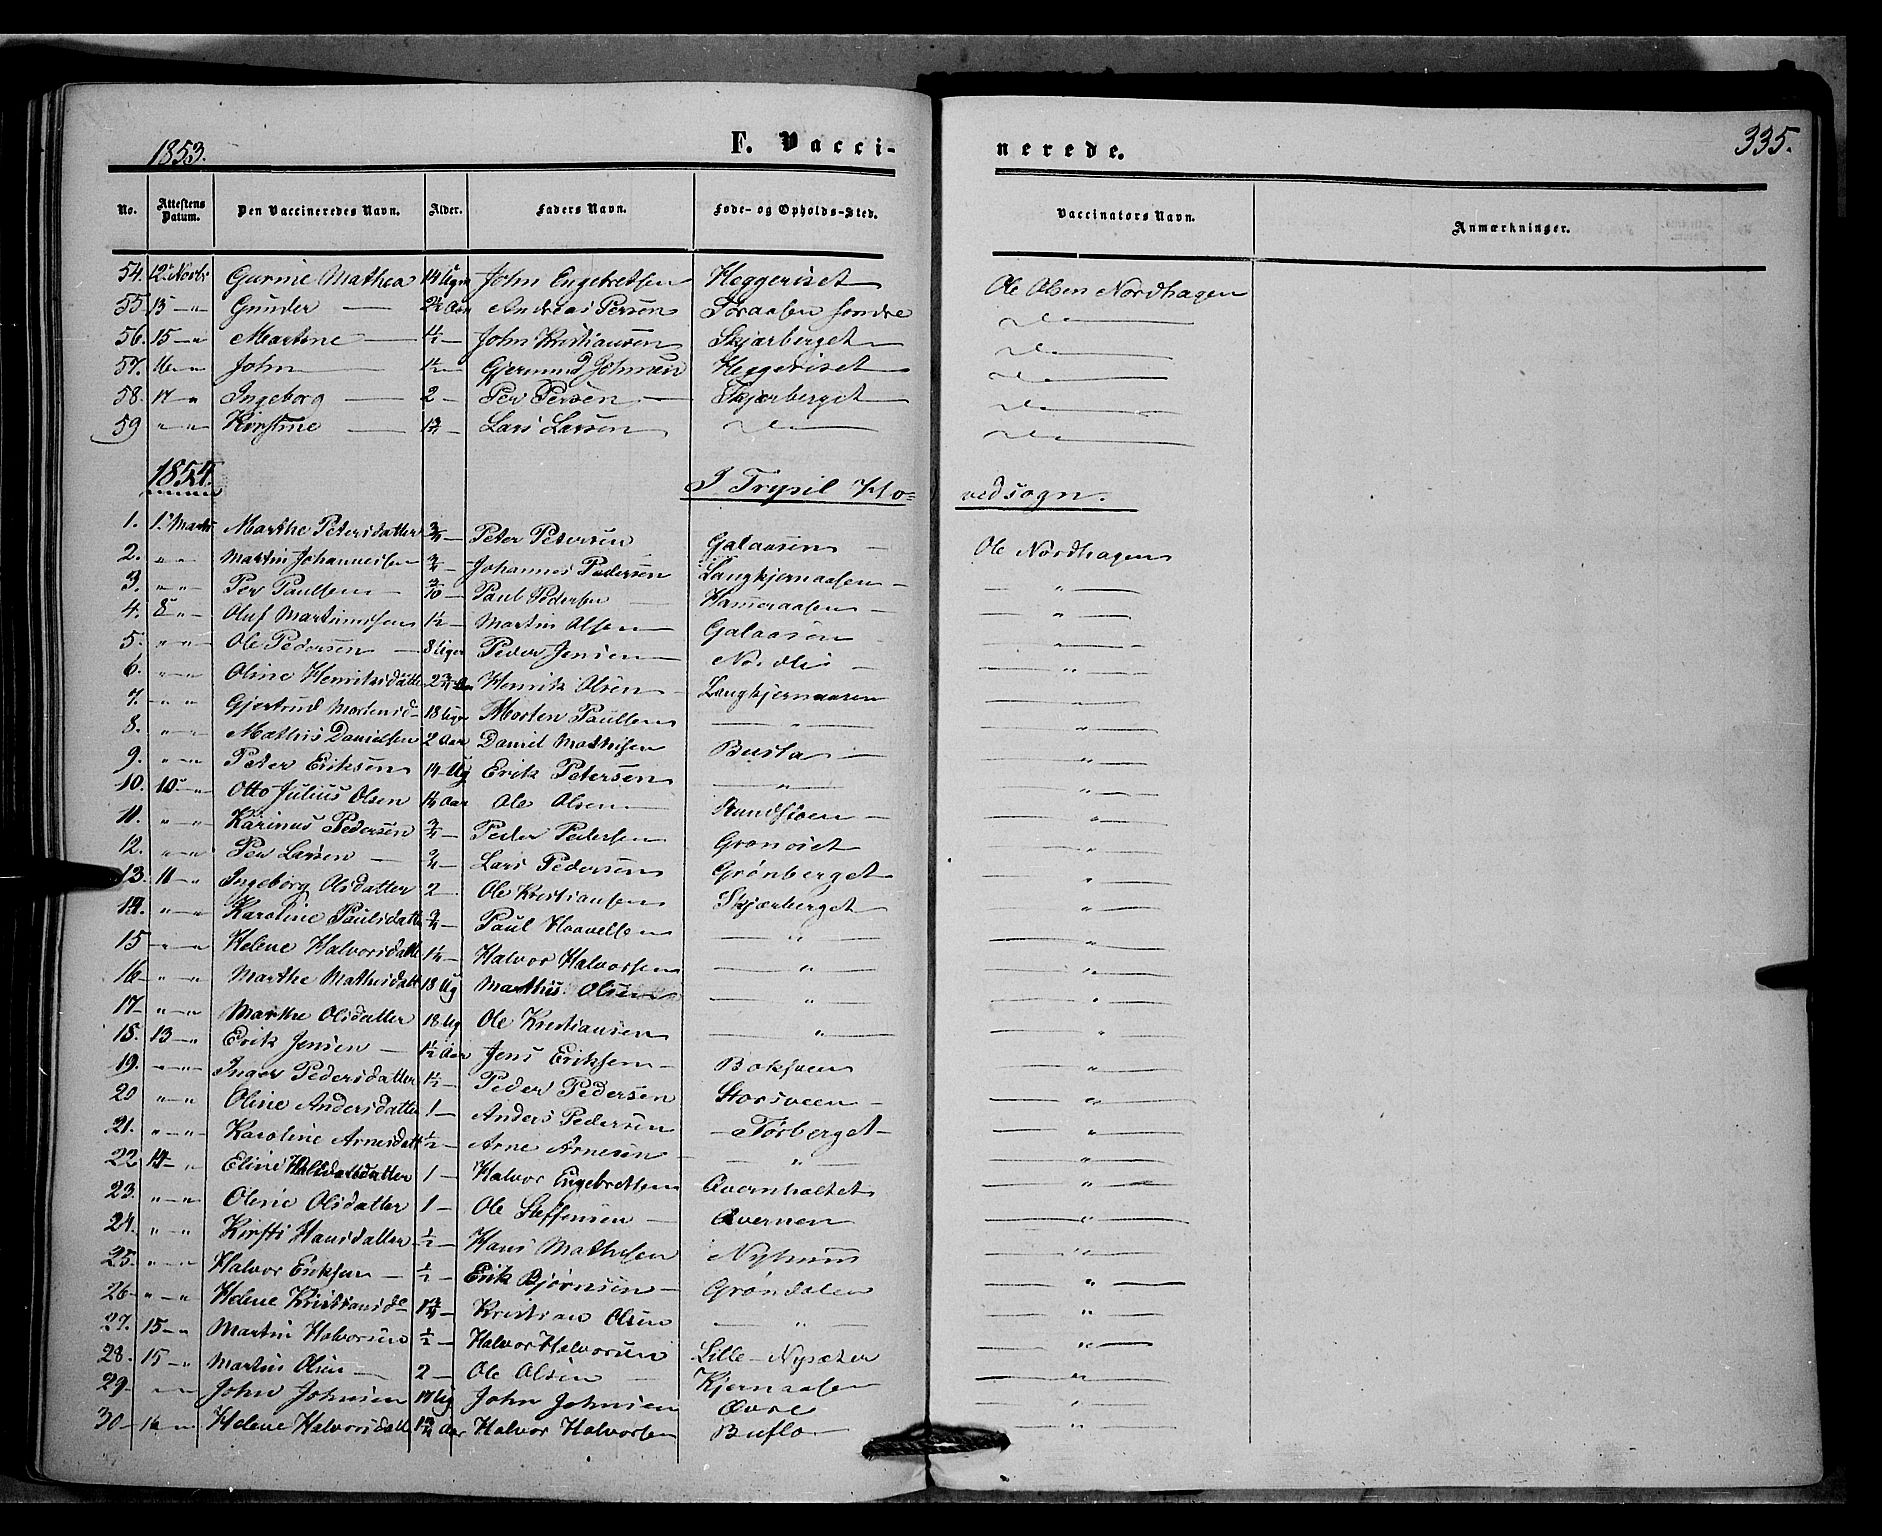 1853.
F. Vacci-
nerede.
335.
No. Attestens Datum. Den Vaccineredes Navn. Alder. Faders Navn. Føde- og Opholds-Sted. Vaccinators Navn. Anmærkninger.
54. 12 Novbr Gurine Mathea 14 Uger John Engebretsen Heggeriset Ole Olsen Nordhagen
55 13 " Gunder Andreas Persen Søraasen søndre do
56. 15 " Martine 1/2 John Kristiansen Skjærberget do
57. 16 " John 1/2 Gjermund Johnsen Heggeriset do
58. 17 " Ingeborg 2 Per Persen Skjærberget do
59 " " Kirstine 1 3/4 Lars Larsen do do
1854. I Trysil Ho=vedsogn.
1. 1 Marts Marthe Pedersdatter 3/4 Peter Petersen Galaasen Ole Nordhagen
2. " " Martin Johannessen 3/4 Johannes Pedersen Langkjernaasen "
3. " " Per Paulsen Paul Pedersen Hammeraasen "
4. 8 " Oluf Martinusen 1 1/2 Martin Olsen Galaasen "
5. " " Ole Pedersen 8 Uger Peder Jensen Nordlis "
6. " " Oline Henriksdatter 2 3/4 Aar Henrik Olsen Langkjernaasen "
7. " " Gjertrud Mortensd 18 Uger Morten Paulsen " "
8. " " Mathis Danielsen 2 Aar Daniel Mathisen Busta "
9. " " Peter Eriksen 14 Ug Erik Petersen " "
10. 10 " Otto Julius Olsen 1 1/2 Aar Ole Olsen Rundfloen "
11. " " Karinus Pedersen 3/4 Peder Pedersen Granoset "
12. " " Per Larsen 3/4 Lars Pedersen Grønberget "
13. 11 " Ingeborg Olsdatter 2 Ole Kristiansen Skjærberget "
14. " " Karoline Paulsdatter 3/4 Paul Haavelsen " "
15 " " Helene Halvorsdatte 1 1/2 Halvor Halvorsen " "
16 " " Marthe Mathisdatt 18 Ug Mathis Olsen " "
17 " " Marthe Olsdatter 18 Ug Ole Kristiansen " "
18. 13 " Erik Jensen 1 1/2 Aar Jens Eriksen Bakjøen "
19. " " Inger Pedersdatter 1 1/2 Peder Pedersen Storsveen "
20 " " Oline Andersdatter 1 Anders Pedersen Tørberget "
21. " " Karoline Arnesdatt 1/2 Arne Arnesen " "
22 14 " Eline Halvorsdatter 1 Halvor Engebretsen Qvernholtet "
23. " " Oline Olsdatter 1 Ole Steffensen Qvernen "
24. " " Kirsti Hansdatter 1/2 Hans Mathisen Nyhuus "
25. " " Halvor Eriksen 1/2 Erik Bjørnsen Grøndalen "
26 " " Helene Kristiansd 1 3/4 Kristian Olsen " "
27. 15 " Martin Halvorsen 1/2 Halvor Halvorsen Lille-Nysæter "
28. 15 " Martin Olsen 2 Ole Olsen Kjernaasen "
29 " " John Johnsen 17 Ug John Johnsen Øvre "
30 16 " Helene Halvorsdatt 1 3/4 Aar Halvor Halvorsen Buflo "